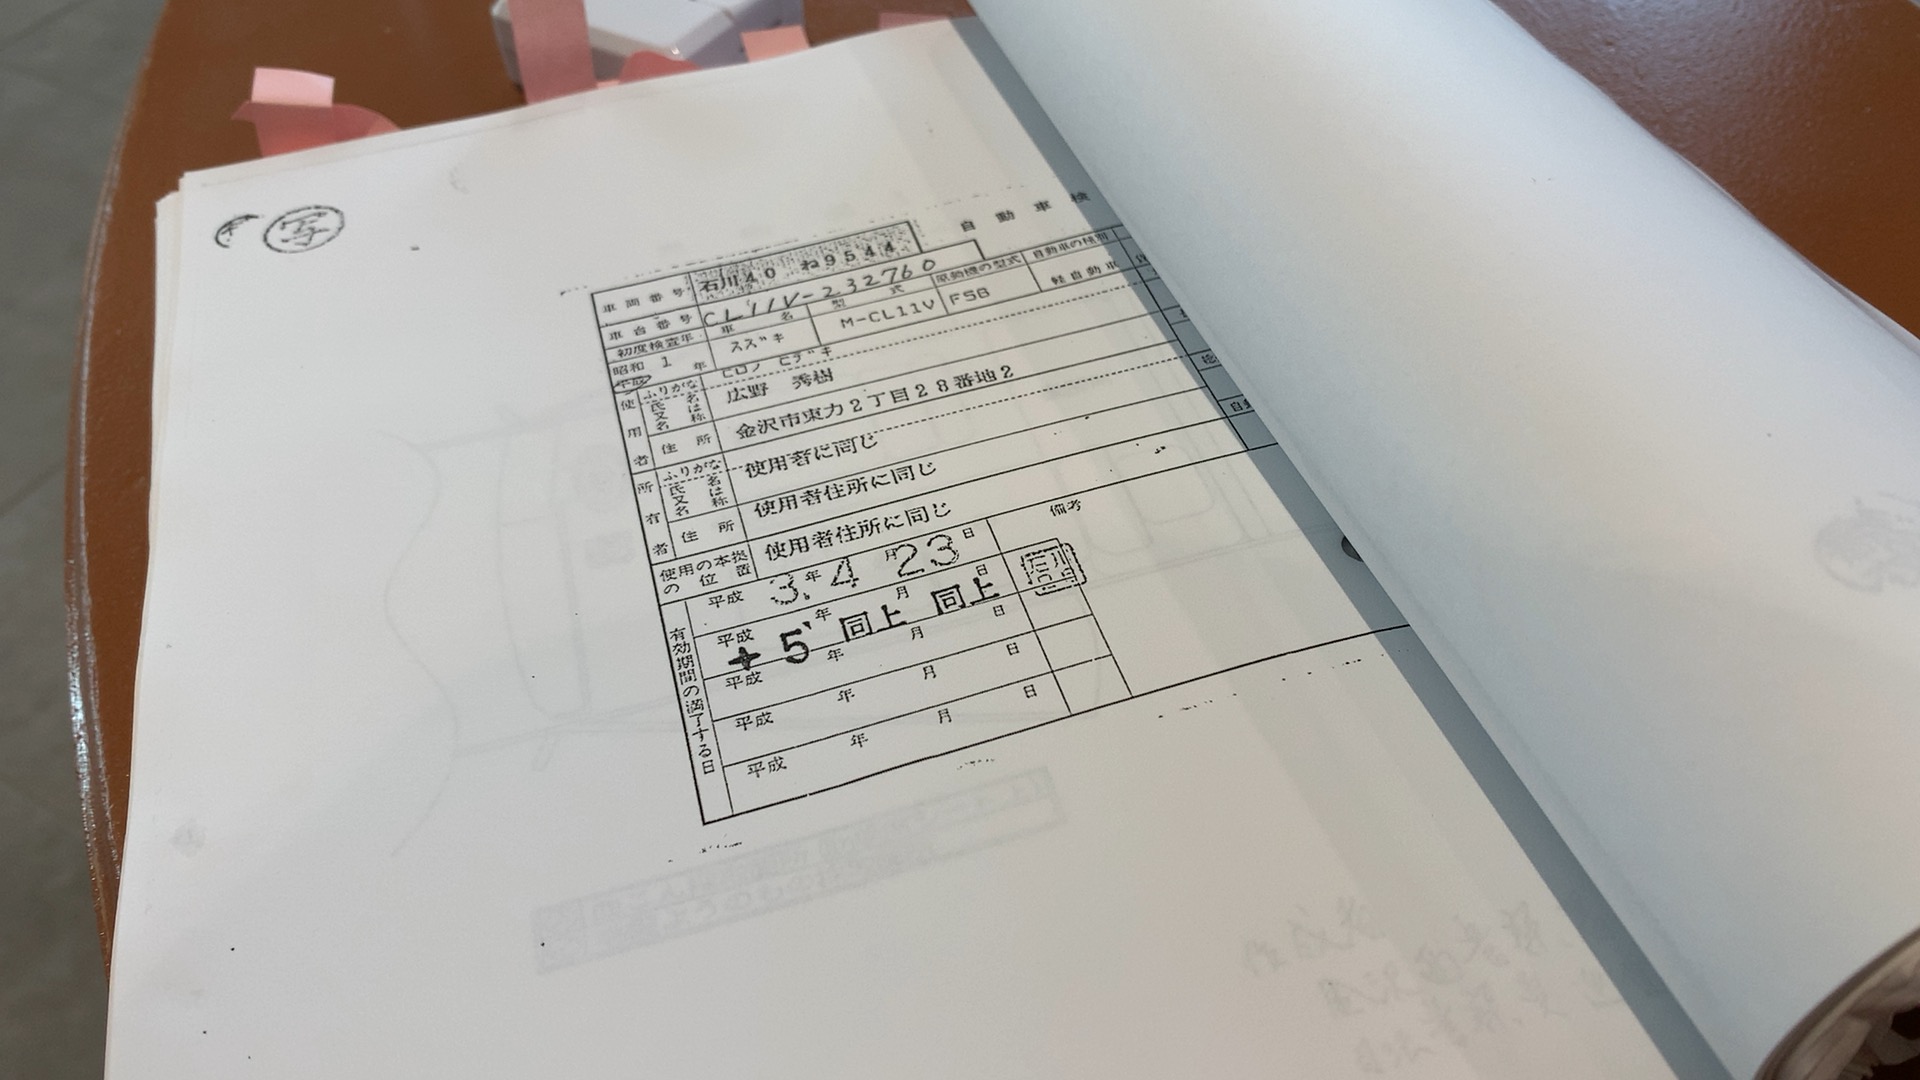 写
自動車検
車両番号 石川40 ね9544
車台番号 CL11V-232760
初度検査年 車名 型式 原動機の型式 自動車の種別
昭和 平成 1年 スズキ M-CL11V F5B 軽自動車
使用者
ふりがな ヒロノ ヒデキ
氏名又は名称 広野 秀樹
住所 金沢市東力2丁目28番地2
所有者
ふりがな
氏名又は名称 使用者に同じ
住所 使用者住所に同じ
使用の本拠の位置 使用者住所に同じ
備考
有効期間の満了する日
平成 3.年 4月 23日
平成 年 月 日
5 同上 同上
平成 年 月 日
平成 年 月 日
平成 年 月 日